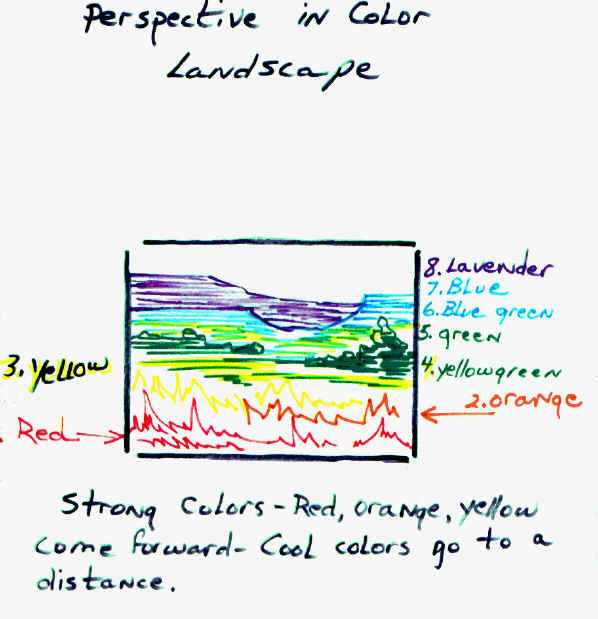 Perspective in Color
Landscape
8. Lavender
7. Blue
6. Blue green
5. green
3. Yellow
4. yellowgreen
2. orange
. Red
Strong Colors - Red, orange, yellow
come forward - Cool colors go to a
distance.